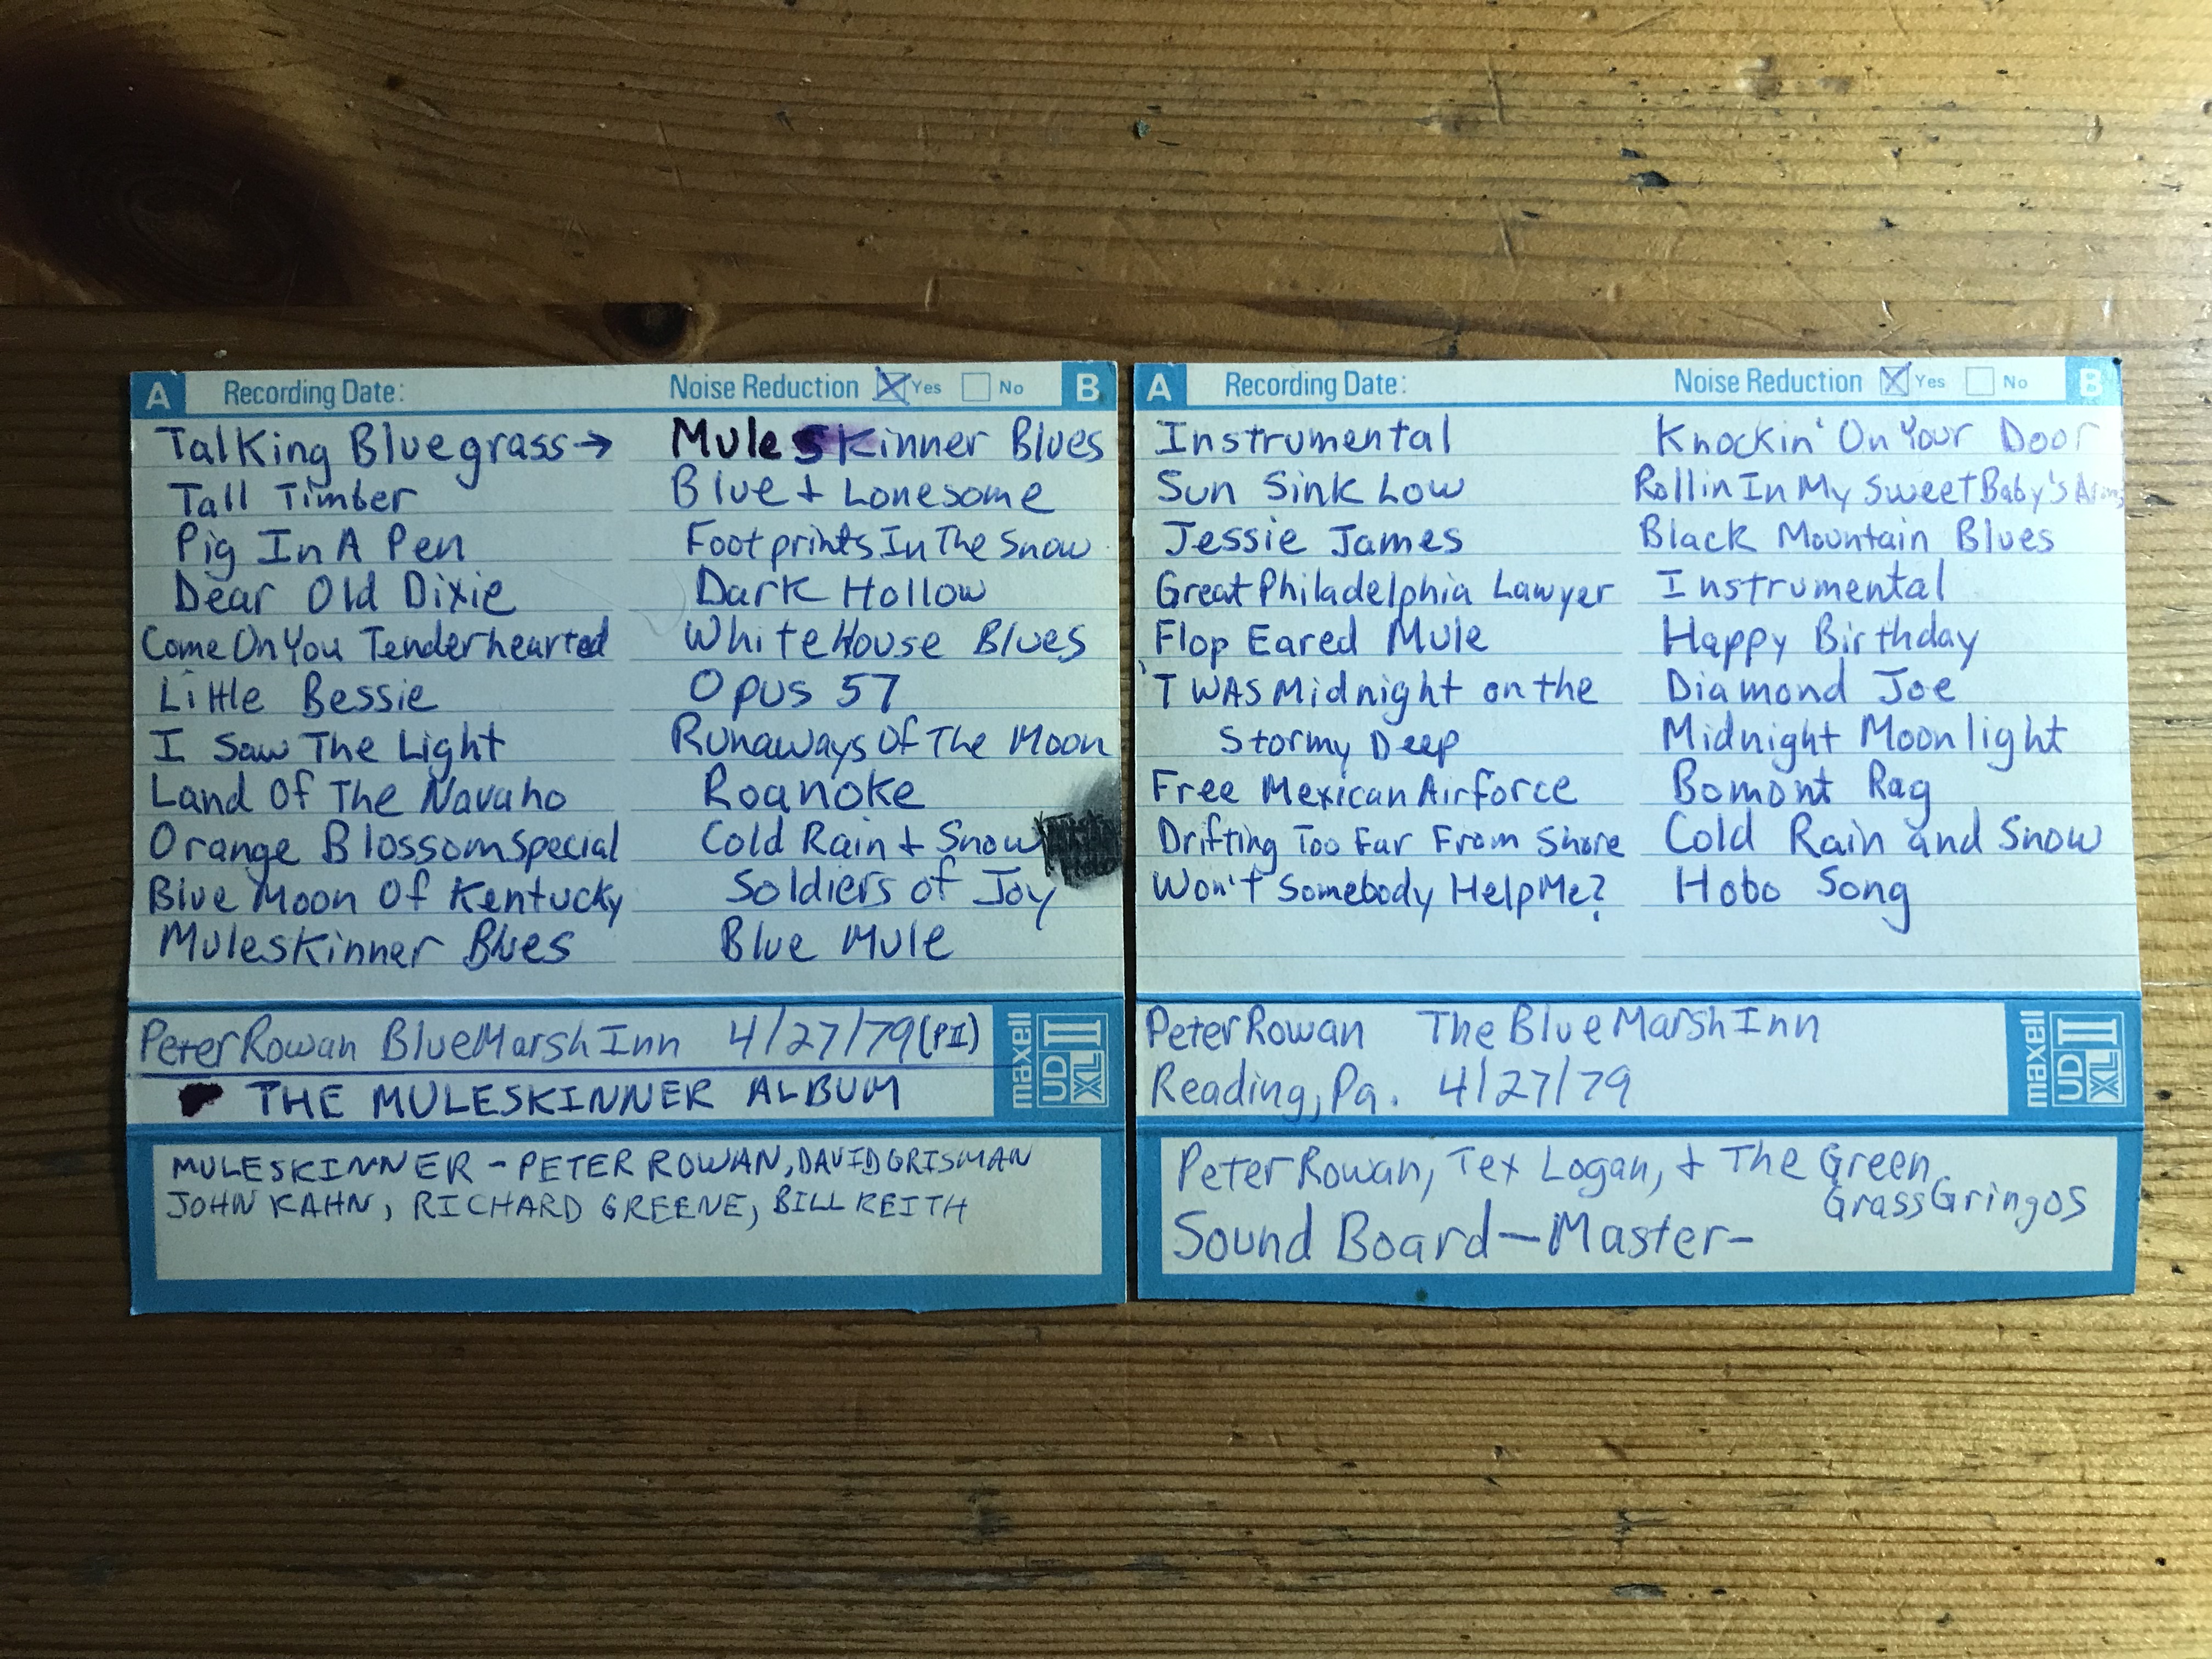 A Recording Date: Noise Reduction Yes No B
Talking Bluegrass→
Tall Timber
Pig In A Pen
Dear Old Dixie
Come On You Tenderhearted
Little Bessie
I Saw The Light
Land Of The Navaho
Orange Blossom Special
Blue Moon Of Kentucky
Muleskinner Blues
Muleskinner Blues
Blue + Lonesome
Footprints In The Snow
Dark Hollow
White House Blues
Opus 57
Runaways Of The Moon
Roanoke
Cold Rain + Snow
Soldiers of Joy
Blue Mule
Peter Rowan Blue Marsh Inn 4/27/79 (Pt II)
THE MULESKINNER ALBUM
maxell UDXL II
MULESKINNER - PETER ROWAN, DAVID GRISMAN
JOHN KAHN, RICHARD GREENE, BILL KEITH
A Recording Date: Noise Reduction Yes No B
Instrumental
Sun Sink Low
Jessie James
Great Philadelphia Lawyer
Flop Eared Mule
'TWAS Midnight on the
Stormy Deep
Free Mexican Airforce
Drifting Too Far From Shore
Won't Somebody Help Me?
Knockin' On Your Door
Rollin In My Sweet Baby's Arms
Black Mountain Blues
Instrumental
Happy Birthday
Diamond Joe
Midnight Moonlight
Bomont Rag
Cold Rain and Snow
Hobo Song
Peter Rowan The Blue Marsh Inn
Reading, Pa. 4/27/79
maxell UDXL II
Peter Rowan, Tex Logan, + The Green
Grass Gringos
Sound Board—Master-